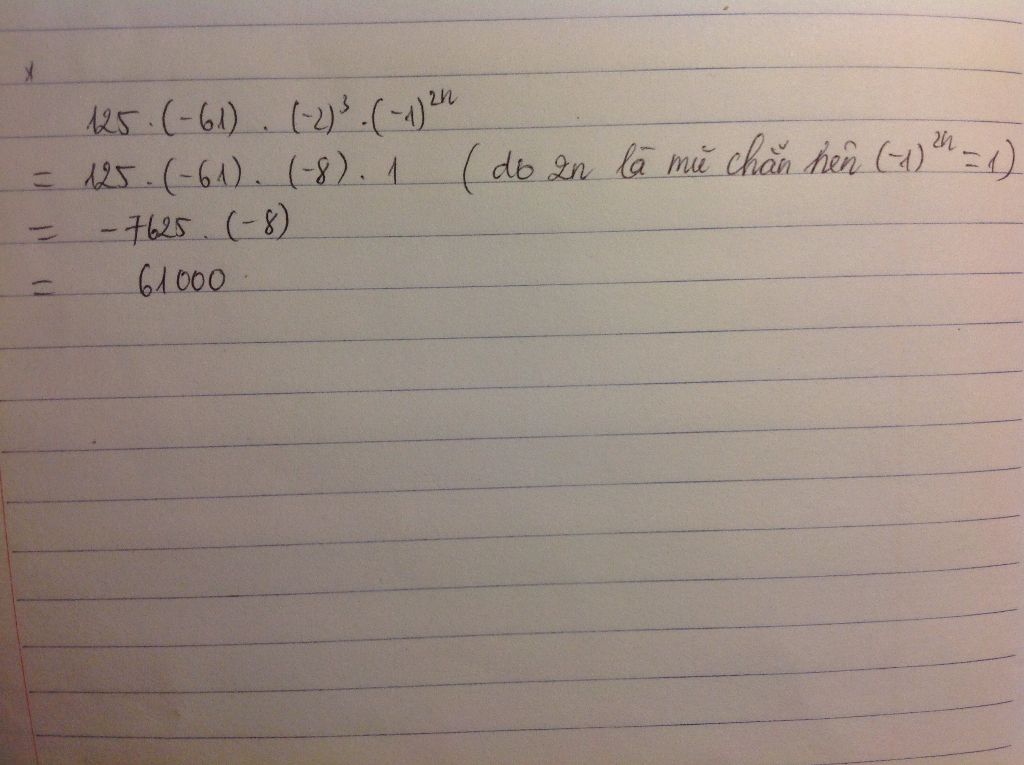 x
125 . (-61) . (-2)³ . (-1)²ⁿ
= 125 . (-61) . (-8) . 1 ( do 2n là mũ chẵn nên (-1)²ⁿ = 1)
= -7625 . (-8)
= 61000